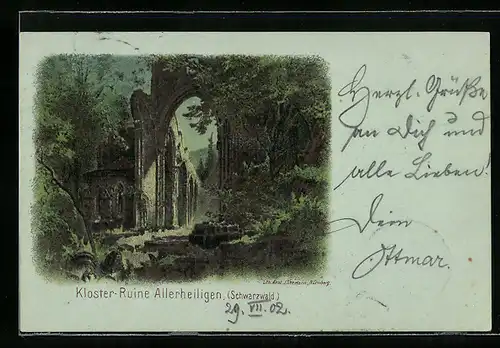 Herzl. Grüße
an Dich und
alle Lieben!
Dein
Ottmar.
Kloster-Ruine Allerheiligen, (Schwarzwald)
29. VII. 02.